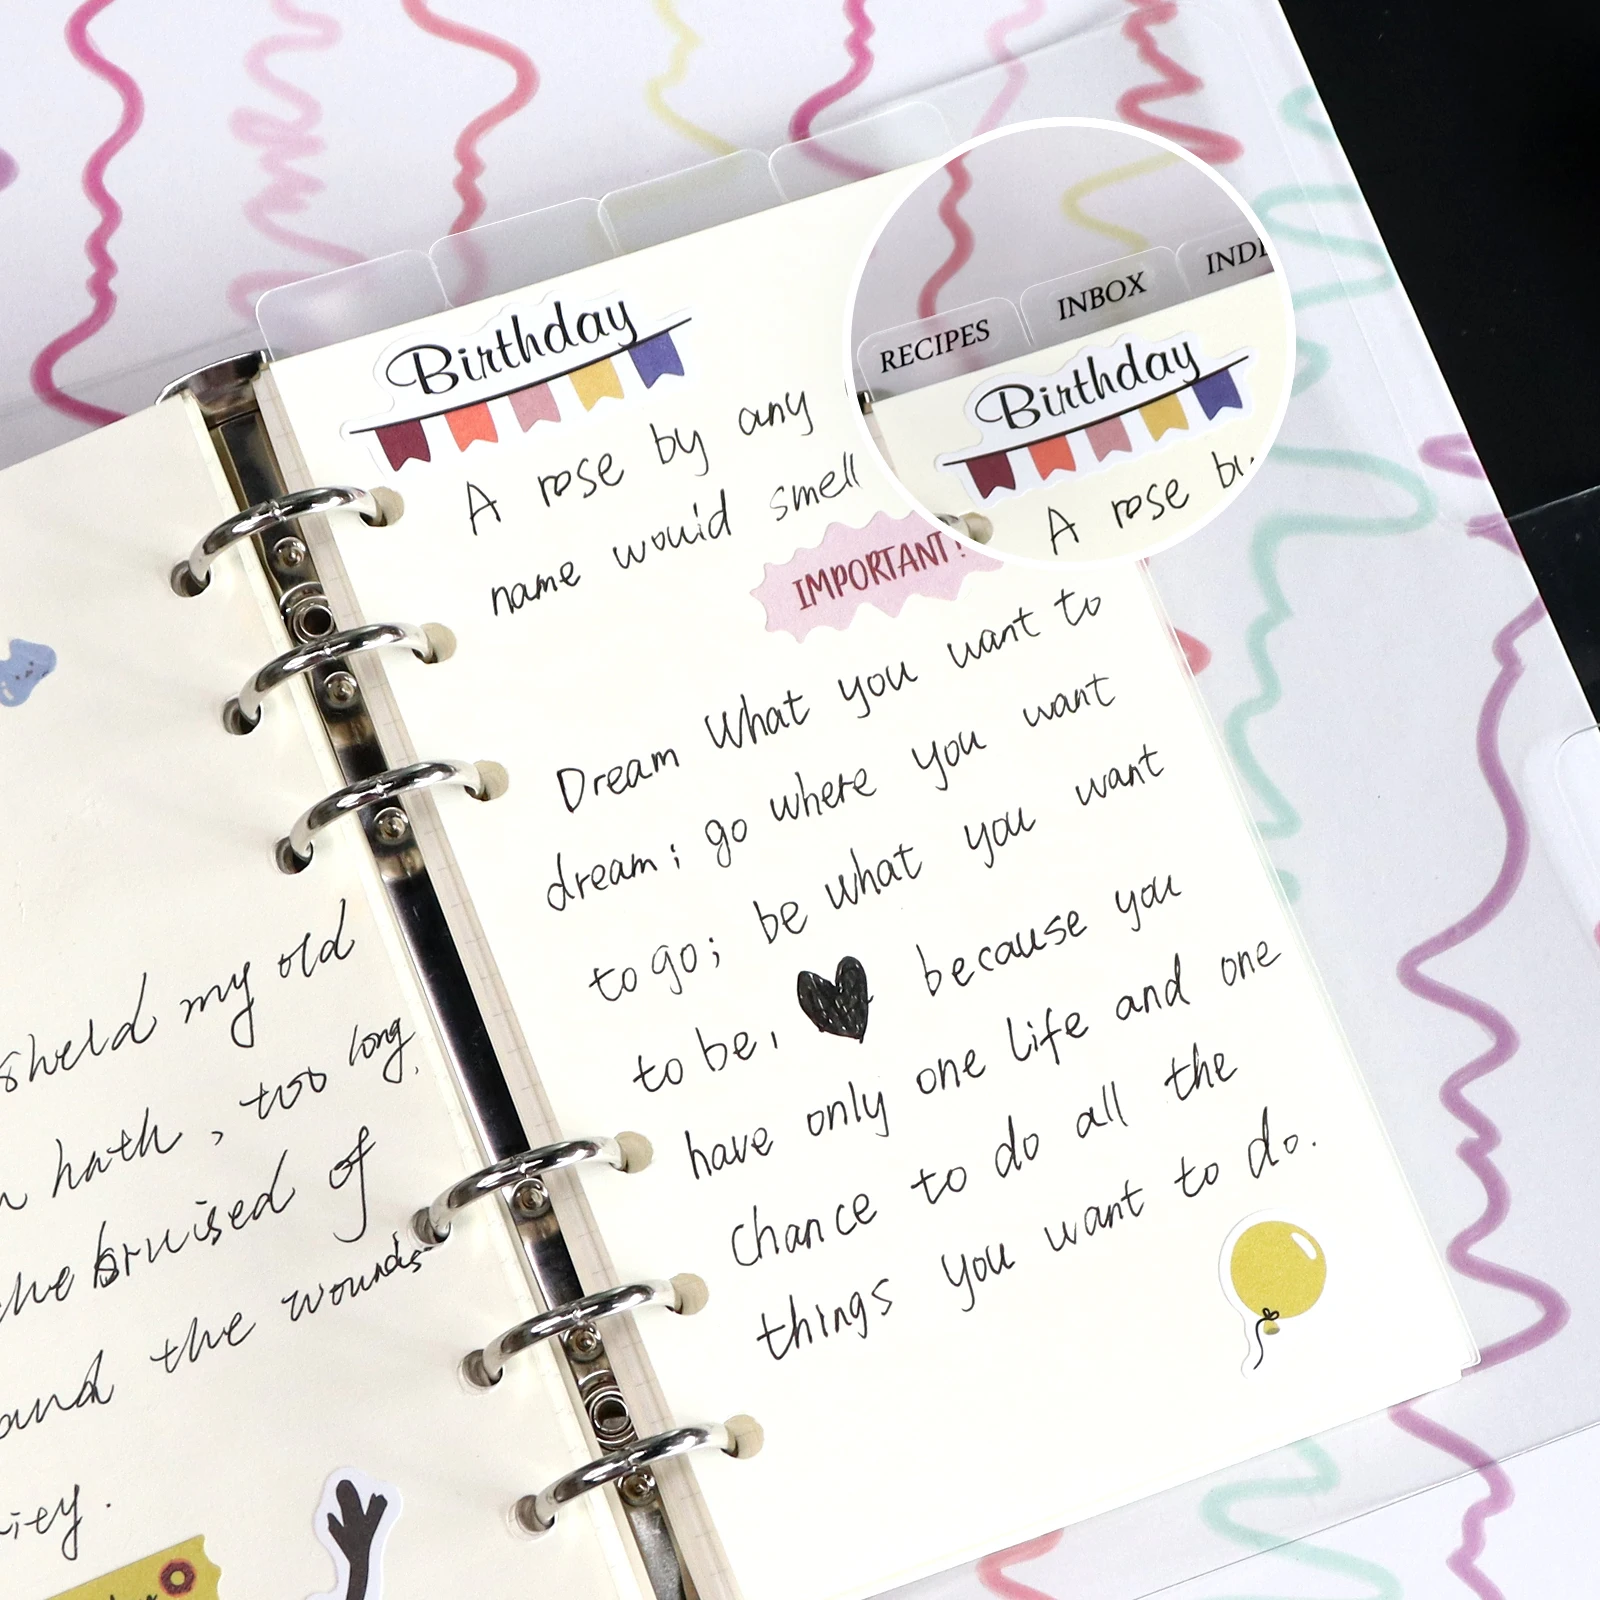 sheld my old
hath, too long,
the bruised of
and the wounds
Birthday
A rose by any
name would smell
IMPORTANT!
Dream What you want to
dream; go where you want
to go; be what you want
to be, because you
have only one life and one
chance to do all the
things you want to do.
RECIPES
INBOX
INDE
Birthday
A rose